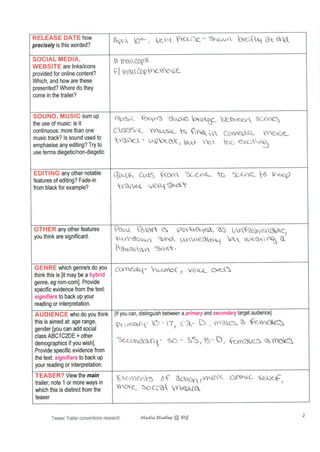 RELEASE DATE how
precisely is this worded?
April 10th, very precise - shown briefly at end
SOCIAL MEDIA,
WEBSITE are links/icons
provided for online content?
Which, and how are these
presented? Where do they
come in the trailer?
# mallcop2
F/mallcopthemovie
SOUND, MUSIC sum up
the use of music; is it
continuous; more than one
music track? Is sound used to
emphasise any editing? Try to
use terms diegetic/non-diegetic
Music forms audio bridge between scenes
classic music to find in comedic movie
trailer - upbeat, but not too exciting
EDITING any other notable
features of editing? Fade-in
from black for example?
Quick cuts from scene to scene to keep
trailer very short
OTHER any other features
you think are significant.
Paul Blart is portrayed as unfashionable,
run-down and unhealthy by wearing a
Hawaiian shirt.
GENRE which genre/s do you
think this is [it may be a hybrid
genre, eg rom-com]. Provide
specific evidence from the text:
signifiers to back up your
reading or interpretation.
comedy - humor, voice overs
AUDIENCE who do you think
this is aimed at: age range,
gender [you can add social
class ABC1C2DE + other
demographics if you wish].
Provide specific evidence from
the text: signifiers to back up
your reading or interpretation.
[If you can, distinguish between a primary and secondary target audience]
Primary - 10-17, C2-D, males & females
Secondary - 30-55, B-D, females & males
TEASER? View the main
trailer; note 1 or more ways in
which this is distinct from the
teaser
Elements of action, more comic relief,
more social
Teaser Trailer conventions research
Media Studies @ IGS
2